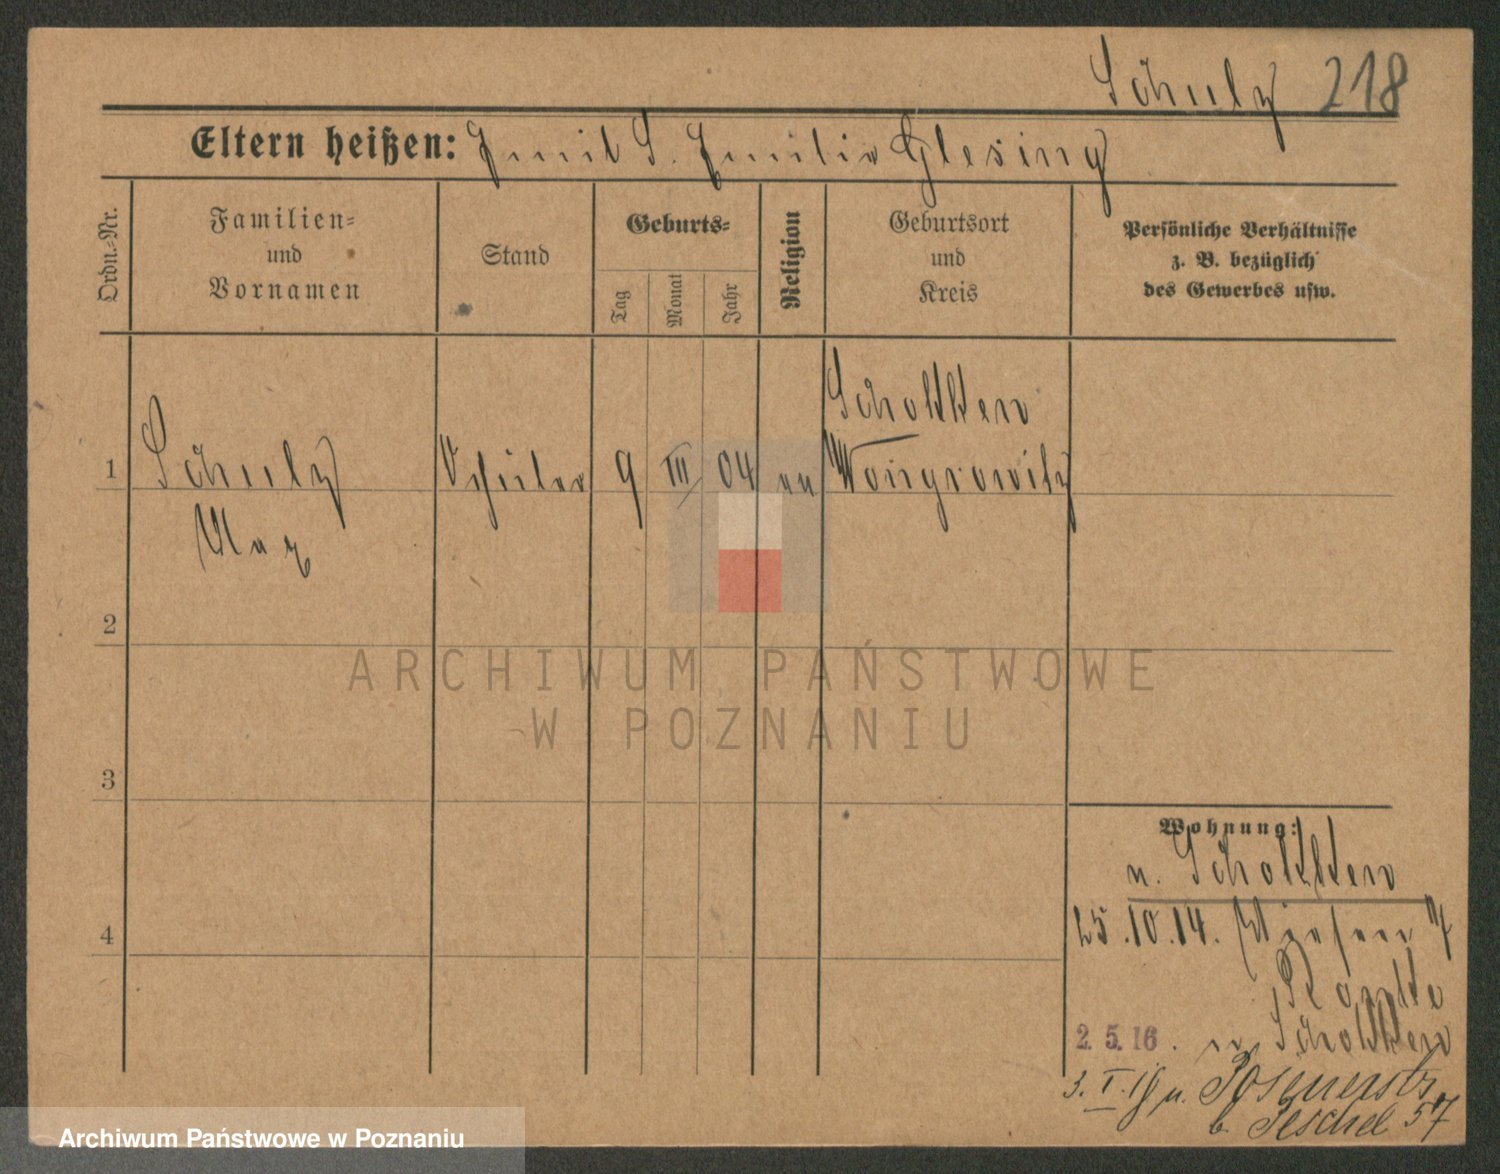 Schulz 218
Eltern heißen: Emil S. Emilie Glesing
Ordn.=Nr.
Familien=
und
Vornamen
Stand
Geburts=
Tag
Monat
Jahr
Religion
Geburtsort
und
Kreis
Persönliche Verhältnisse
z. B. bezüglich
des Gewerbes usw.
Schokken
1 Schulz Schüler 9 III 04 Wongrowitz
Max
2
ARCHIWUM PAŃSTWOWE
W POZNANIU
3
Wohnung:
n. Schokken
4
25.10.14.
2. 5. 16. n. Schokken
3. I. 19 n. Posenerstr.
b. Peschel 57
Archiwum Państwowe w Poznaniu